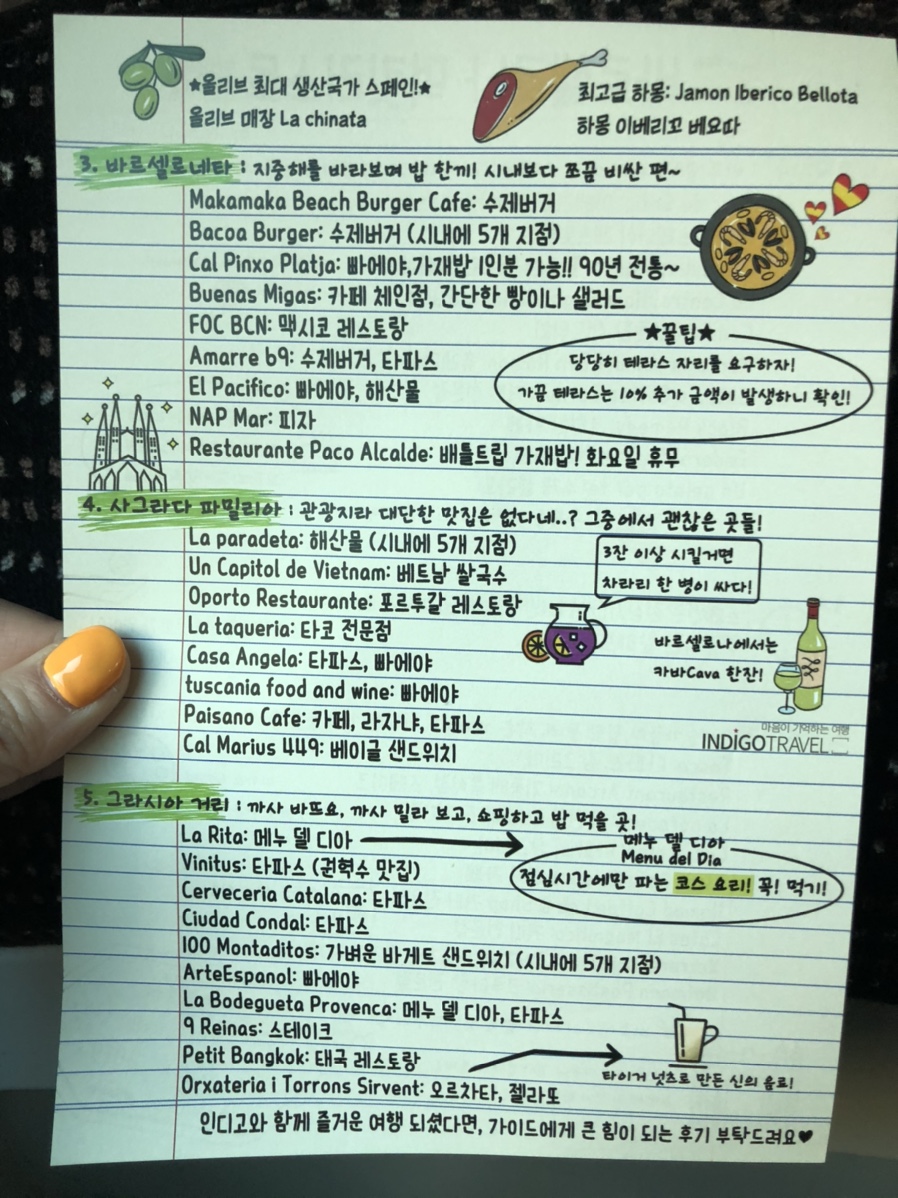 ★올리브 최대 생산국가 스페인!★
올리브 매장 La chinata
최고급 하몽: Jamon Iberico Bellota
하몽 이베리꼬 베요따
3. 바르셀로네타 : 지중해를 바라보며 밥 한끼! 시내보다 쪼끔 비싼 편~
Makamaka Beach Burger Cafe: 수제버거
Bacoa Burger: 수제버거 (시내에 5개 지점)
Cal Pinxo Platja: 빠에야,가재밥 1인분 가능!! 90년 전통~
Buenas Migas: 카페 체인점, 간단한 빵이나 샐러드
FOC BCN: 맥시코 레스토랑
Amarre 69: 수제버거, 타파스
El Pacifico: 빠에야, 해산물
NAP Mar: 피자
Restaurante Paco Alcalde: 배틀트립 가재밥! 화요일 휴무
★꿀팁★
당당히 테라스 자리를 요구하자!
가끔 테라스는 10% 추가 금액이 발생하니 확인!
4. 사그라다 파밀리아 : 관광지라 대단한 맛집은 없다네..? 그중에서 괜찮은 곳들!
La paradeta: 해산물 (시내에 5개 지점)
Un Capitol de Vietnam: 베트남 쌀국수
Oporto Restaurante: 포르투갈 레스토랑
La taqueria: 타코 전문점
Casa Angela: 타파스, 빠에야
tuscania food and wine: 빠에야
Paisano Cafe: 카페, 라자냐, 타파스
Cal Marius 449: 베이글 샌드위치
3잔 이상 시킬거면
차라리 한 병이 싸다!
바르셀로나에서는
카바Cava 한잔!
마음이 기억하는 여행
INDIGOTRAVEL
5. 그라시아 거리 : 까사 바뜨요, 까사 밀라 보고, 쇼핑하고 밥 먹을 곳!
La Rita: 메뉴 델 디아
Vinitus: 타파스 (권혁수 맛집)
Cerveceria Catalana: 타파스
Ciudad Condal: 타파스
100 Montaditos: 가벼운 바게트 샌드위치 (시내에 5개 지점)
ArteEspanol: 빠에야
La Bodegueta Provenca: 메뉴 델 디아, 타파스
9 Reinas: 스테이크
Petit Bangkok: 태국 레스토랑
Orxateria i Torrons Sirvent: 오르차타, 젤라또
메뉴 델 디아
Menu del Dia
점심시간에만 파는 코스 요리! 꼭! 먹기!
타이거 넛츠로 만든 신의 음료!
인디고와 함께 즐거운 여행 되셨다면, 가이드에게 큰 힘이 되는 후기 부탁드려요♥